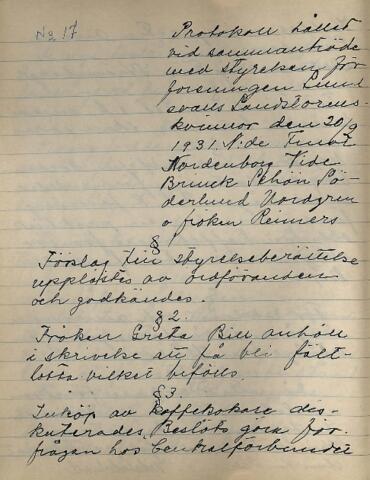 No 17
Protokoll hållet
vid sammanträde
med styrelsen för
föreningen Sund
svalls Landstorms-
kvinnor den 20/9
1931. N:de
Nordenborg Vide
Brunck Schön Sö-
derlund Nordgren
o fröken Reimers
§
Förslag till styrelseberättelse
upplästes av ordföranden
och godkändes.
§ 2.
Fröken Greta Bill anhöll
i skrivelse att få bli fält-
lotta vilket bifölls.
§ 3.
Inköp av kaffekokare dis-
kuterades. Beslöts göra för
frågan hos Centralförbundet